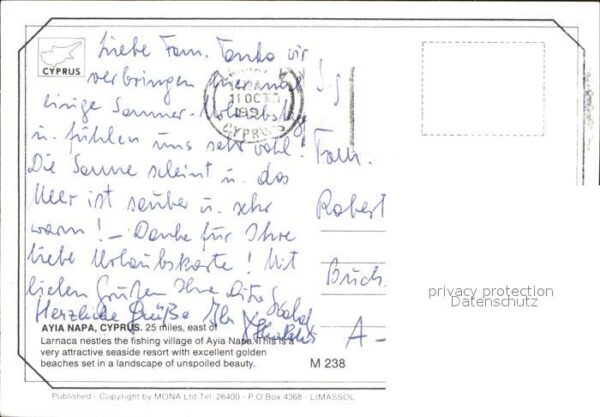 CYPRUS
Liebe Fam. Tanko wir
verbringen
einige Sommer-Urlaubstage
u. fühlen uns sehr wohl!
Die Sonne scheint u. das
Meer ist sauber u. sehr
warm! – Danke für Ihre
liebe Urlaubskarte! Mit
lieben Grüßen Ihre
Herzliche Grüße Ihr
11 OCT
CYPRUS
Fam.
Robert
Bruck
A -
privacy protection
Datenschutz
AYIA NAPA, CYPRUS. 25 miles, east of
Larnaca nestles the fishing village of Ayia Napa. This is a
very attractive seaside resort with excellent golden
beaches set in a landscape of unspoiled beauty.
M 238
Published - Copyright by MONA Ltd Tel. 26400 - P.O.Box 4368 - LIMASSOL